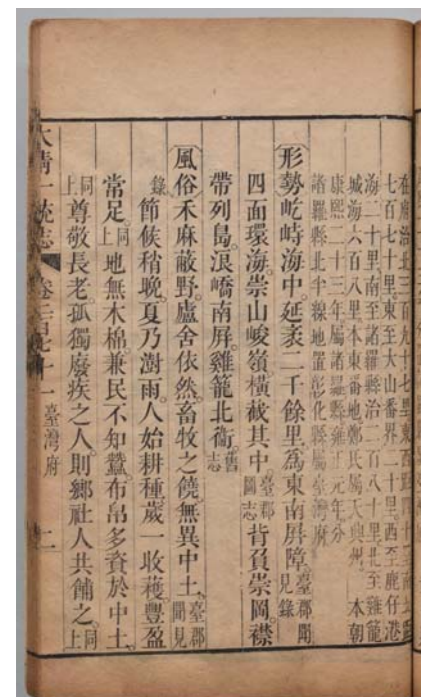 在府治北三百九十七里東西距四十里南北距
七百七十里東至大山番界二十里西至鹿仔港
海二十里南至諸羅縣治二百八十里北至雞籠
城海六百八里本東番地鄭氏屬天興州 本朝
康熙二十三年屬諸羅縣雍正元年分
諸羅縣北半線地置彰化縣屬臺灣府
形勢屹峙海中。延袤二千餘里爲東南屏障。臺郡聞見錄
四面環海。崇山峻嶺。橫截其中。臺郡圖志背負崇岡。襟
帶列島。浪嶠南屏。雞籠北衛。舊志
風俗禾麻蔽野。廬舍依然。畜牧之饒。無異中土。臺郡聞見
錄。節候稍晚。夏乃澍雨。人始耕種。歲一收穫。豐盈
常足。同上地無木棉。兼民不知蠶。布帛多資於中土。
同上尊敬長老。孤獨廢疾之人。則鄉社人共餔之。同上
大清一統志 卷二百七十一 臺灣府 二